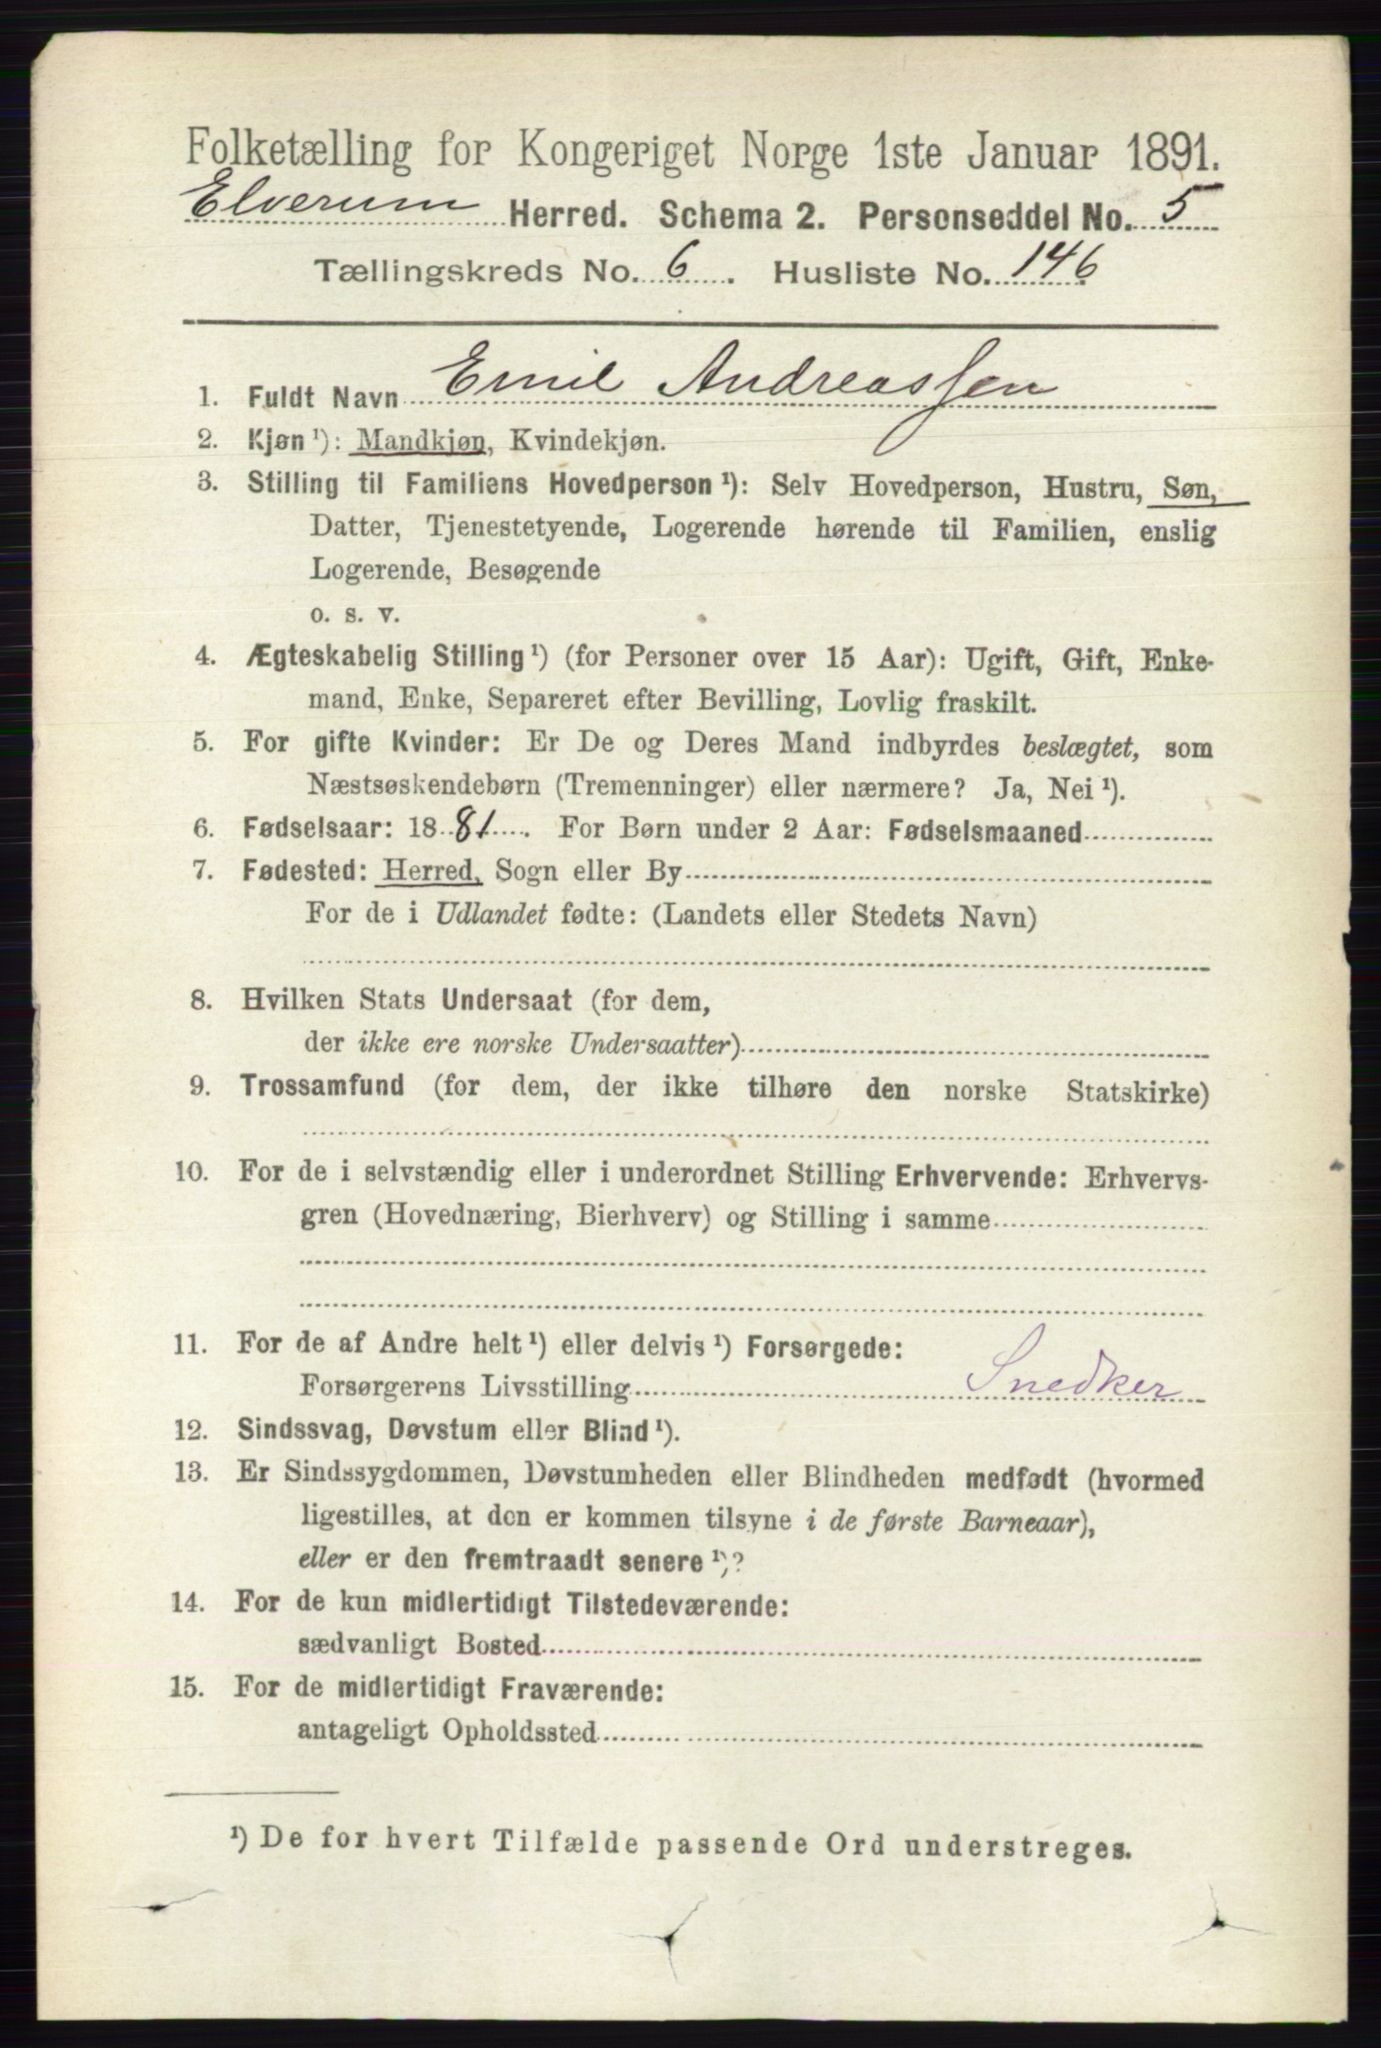 Folketælling for Kongeriget Norge 1ste Januar 1891.
Elverum Herred. Schema 2. Personseddel No. 5
Tællingskreds No. 6. Husliste No. 146
1. Fuldt Navn Emil Andreassen
2. Kjøn ¹): Mandkjøn, Kvindekjøn.
3. Stilling til Familiens Hovedperson ¹): Selv Hovedperson, Hustru, Søn,
Datter, Tjenestetyende, Logerende hørende til Familien, enslig
Logerende, Besøgende
o. s. v.
4. Ægteskabelig Stilling ¹) (for Personer over 15 Aar): Ugift, Gift, Enke-
mand, Enke, Separeret efter Bevilling, Lovlig fraskilt.
5. For gifte Kvinder: Er De og Deres Mand indbyrdes beslægtet, som
Næstsøskendebørn (Tremenninger) eller nærmere? Ja, Nei ¹).
6. Fødselsaar: 1881. For Børn under 2 Aar: Fødselsmaaned
7. Fødested: Herred, Sogn eller By
For de i Udlandet fødte: (Landets eller Stedets Navn)
8. Hvilken Stats Undersaat (for dem,
der ikke ere norske Undersaatter)
9. Trossamfund (for dem, der ikke tilhøre den norske Statskirke)
10. For de i selvstændig eller i underordnet Stilling Erhvervende: Erhvervs-
gren (Hovednæring, Bierhverv) og Stilling i samme
11. For de af Andre helt ¹) eller delvis ¹) Forsørgede:
Forsørgerens Livsstilling Snedker
12. Sindssvag, Døvstum eller Blind ¹).
13. Er Sindssygdommen, Døvstumheden eller Blindheden medfødt (hvormed
ligestilles, at den er kommen tilsyne i de første Barneaar),
eller er den fremtraadt senere ¹)?
14. For de kun midlertidigt Tilstedeværende:
sædvanligt Bosted
15. For de midlertidigt Fraværende:
antageligt Opholdssted
¹) De for hvert Tilfælde passende Ord understreges.